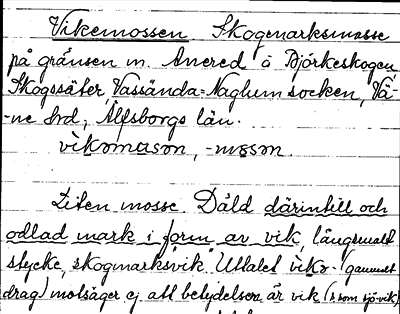 Vikemossen Skogmarksmosse
på gränsen m. Anered o Björkeskogen
Skogssäter, Vassända=Naglum socken, Vä-
-ne hd, Älfsborgs län.
vikomason, -mɷsɷn.
Liten mosse. Dåld därintill och
odlad mark i form av vik, längsmalt
stycke, skogmarksvik. Uttalet viko- (gammalt
drag) motsäger ej att betydelsen är vik (som sjö-vik)